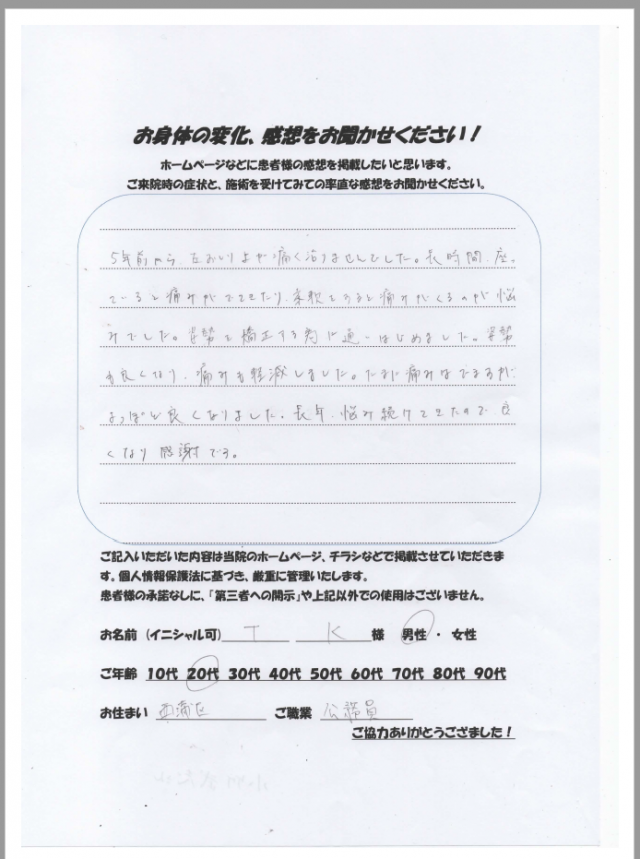 お身体の変化、感想をお聞かせください！
ホームページなどに患者様の感想を掲載したいと思います。
ご来院時の症状と、施術を受けてみての率直な感想をお聞かせください。
5年前から、左おしりまが痛く治りませんでした。長時間、座っ
ていると痛みがでてきたり、柔軟をすると痛みがくるのが悩
みでした。姿勢を矯正する為に通いはじめました。姿勢
も良くなり、痛みも軽減しました。たまに痛みはでますが
よっぽど良くなりました。長年、悩み続けてきたので、良
くなり感謝です。
ご記入いただいた内容は当院のホームページ、チラシなどで掲載させていただきま
す。個人情報保護法に基づき、厳重に管理いたします。
患者様の承諾なしに、「第三者への開示」や上記以外での使用はございません。
お名前（イニシャル可） T K 様 男性 ・ 女性
ご年齢 10代 20代 30代 40代 50代 60代 70代 80代 90代
お住まい 西蒲区 ご職業 公務員
ご協力ありがとうござました！